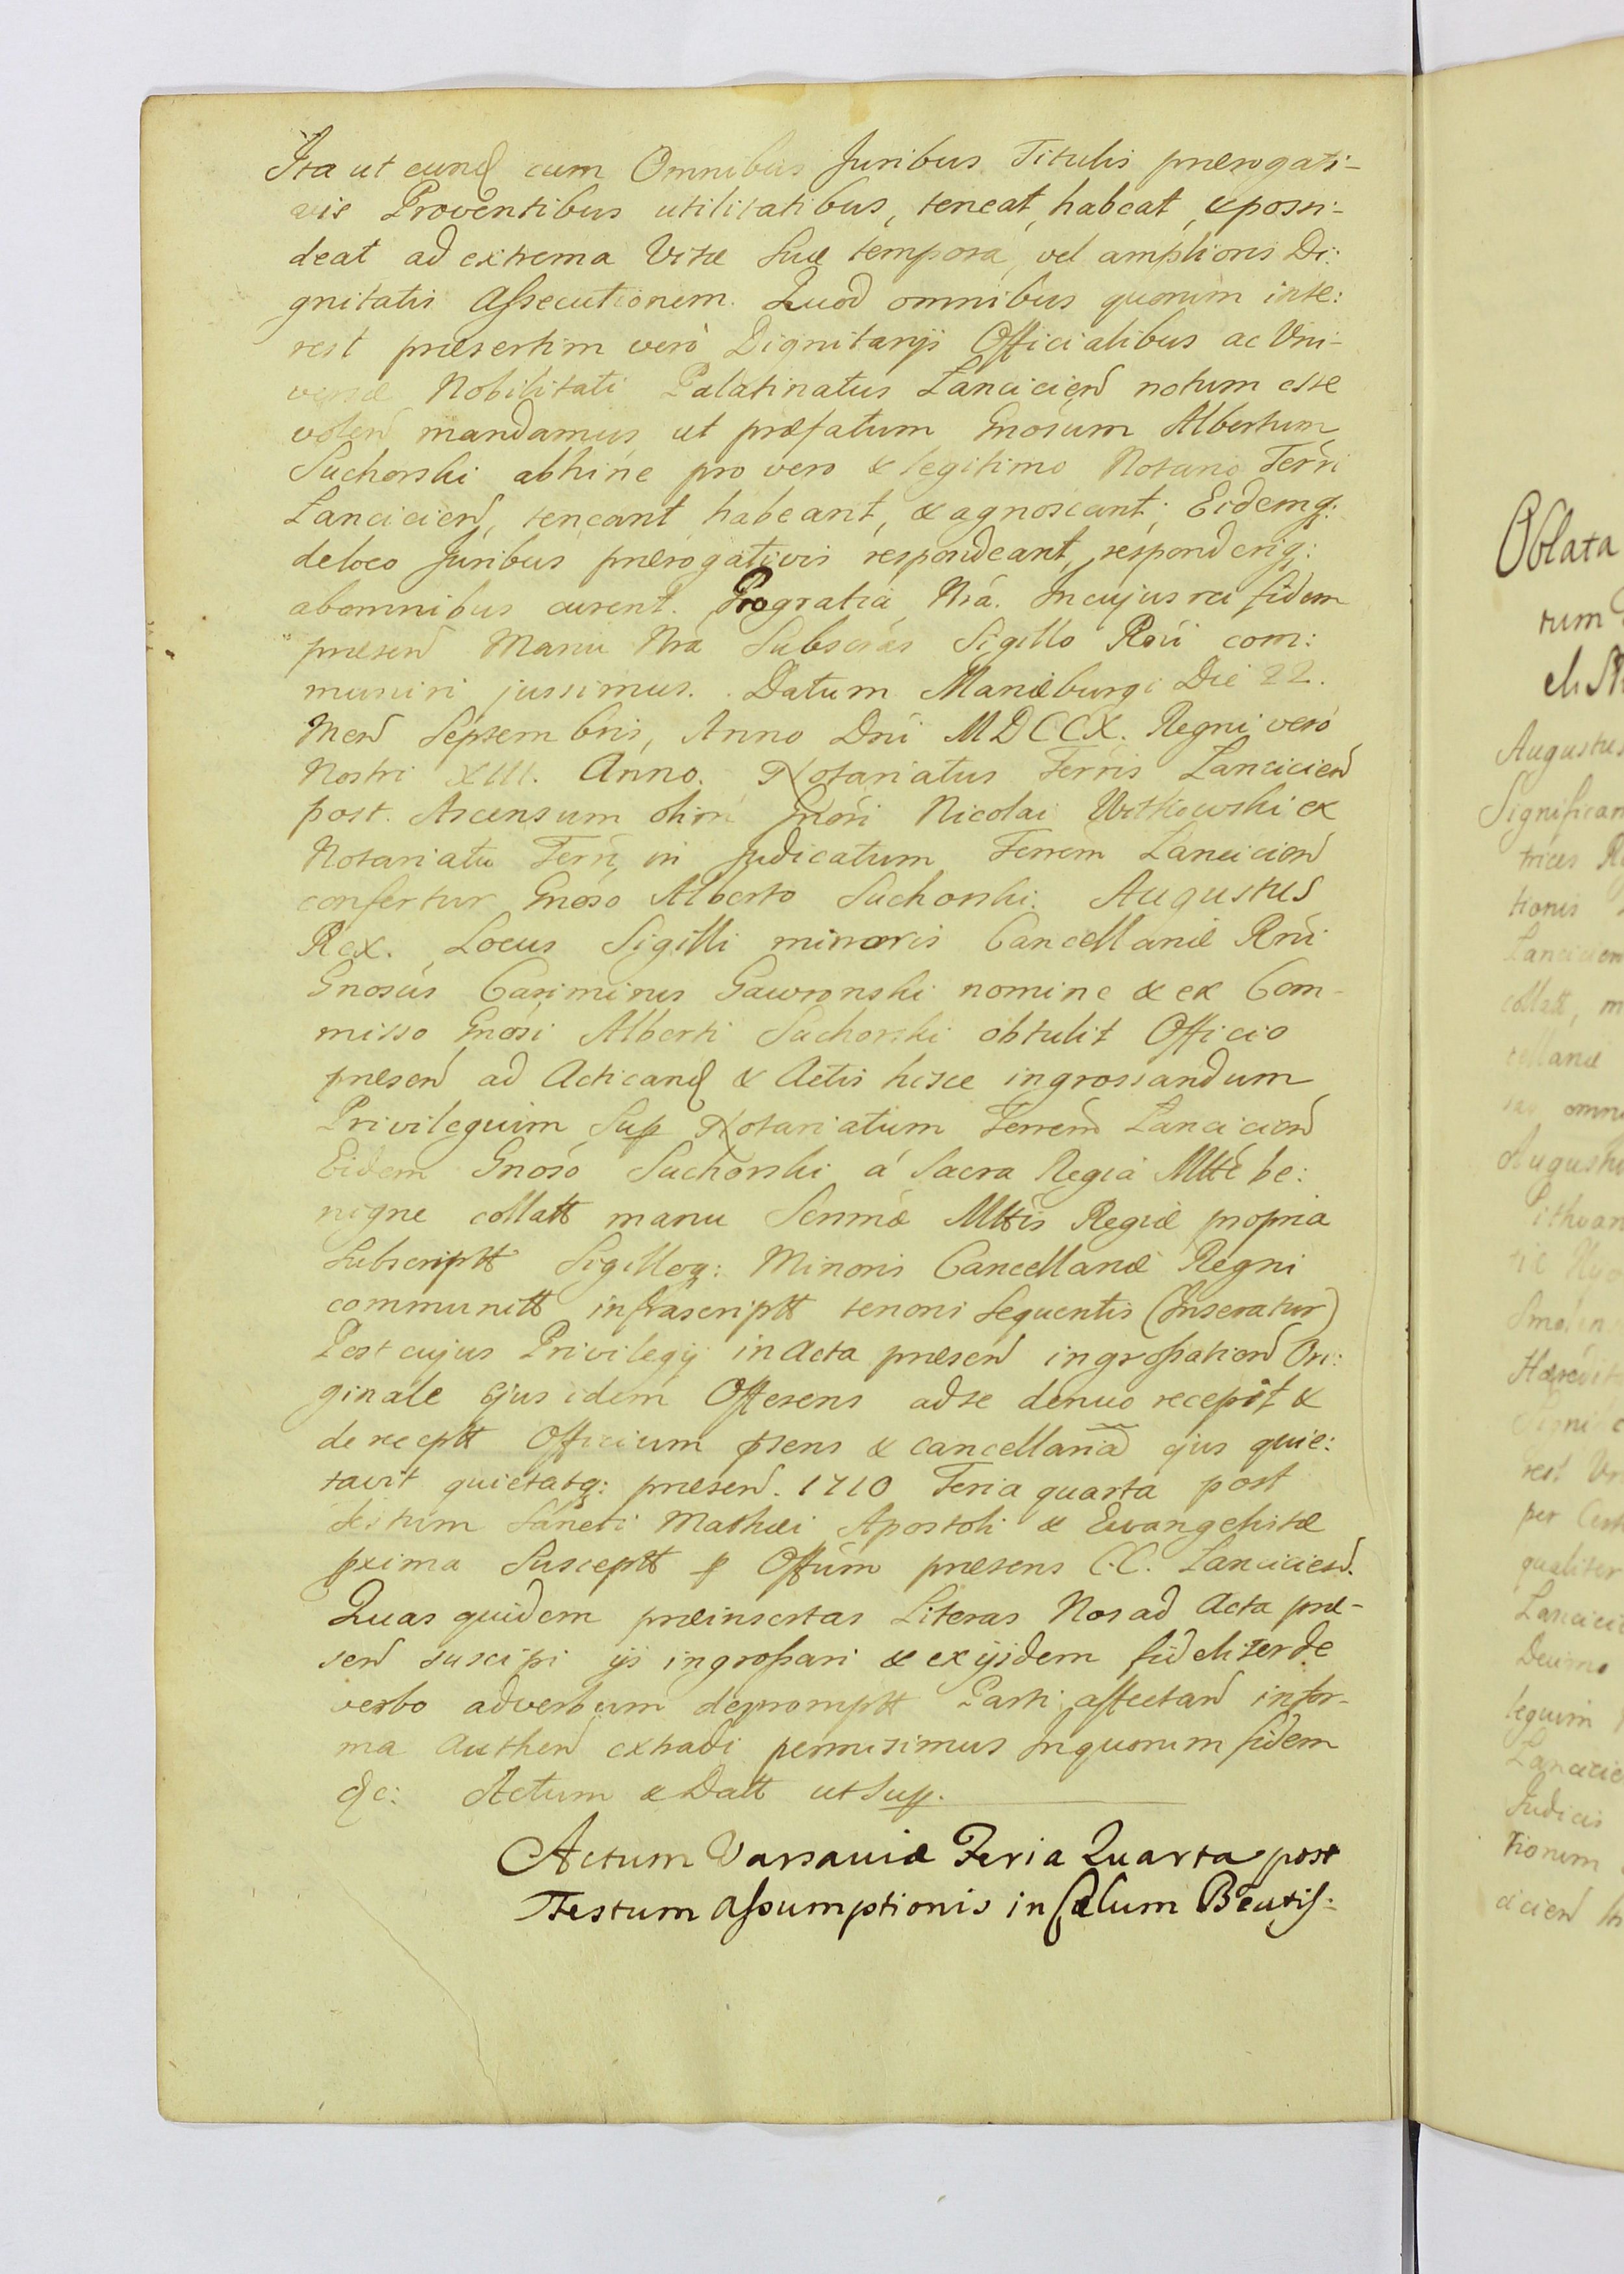 Ita ut eund cum Omnibus Juribus Titulis prærogati-
vis Proventibus utilitatibus, teneat, habeat, & possi-
deat ad extrema Vitæ Suæ tempora, vel amplioris Di:
gnitatis Assecutionem. Quod omnibus quorum inte:
rest præsertim verò Dignitarijs Officialibus ac Vni-
versæ Nobilitati Palatinatus Lanciciend notum esse
volend mandamus, ut præfatum Gnosum Albertum
Suchorski abhinc pro vero & legitimo Notario Terri
Lanciciend, teneant habeant, & agnoscant; Eidemq:
de loco Juribus prærogativis respondeant, responderiq:
ab omnibus curent. Pro gratiá Nrá. In cujus rei fidem
præsend Manu Nrá Subscrás Sigillo Rni com:
muniri jussimus. Datum Mariæburgi Die 22.
Mend Septembris, Anno Dni MDCCX. Regni verò
Nostri XIII. Anno. Notariatus Terris Lanciciend
post Ascensum olim Gnosi Nicolai Witkowski ex
Notariatu Terri, in Judicatum Terrem Lanciciend
confertur Gnoso Alberto Suchorski. Augustus
Rex. Locus Sigilli minoris Cancellariæ Rni
Gnosus Casimirus Gawronski nomine & ex Com-
misso Gnosi Alberti Suchorski obtulit Officio
præsend ad Acticand & Actis hisce ingrossandum
Privilegium Sup Notariatum Terrem Lanciciend
Eidem Gnoso Suchorski á Sacra Regiá Mtte be:
nigne collatt manu Serimæ Mttis Regiæ propria
Subscriptt Sigilloq: Minoris Cancellariæ Regni
communitt infrascriptt tenoris sequentis (Inseratur)
Post cujus Privilegij in Acta præsend ingrossationd Ori:
ginale ejus idem Offerens ad se denuo recepit &
de receptt Officium psens & cancellariad ejus quie:
tavit quietatq: præsend. 1710 Feria quarta post
Festum Sancti Mathæi Apostoli & Evangelistæ
pxima Susceptt p Offium præsens C.C. Lanciciend.
Quas quidem præinsertas Literas Nos ad Acta præ-
send suscipi ijs ingrossari & ex ijsdem fideliter de
verbo ad verbum depromptt Parti affectand in for-
ma Authend extradi permisimus In quorum fidem
&c: Actum & Datt ut Sup.
Actum Varsaviæ Feria Quarta post
Festum Assumptionis in Cælum Beatiss:
Oblata
rum
Augustus
Significam
trices
tionis
Lancicien
collatt, m
cellariæ
omni
Augustus
Lithuan
Smolen
Hæredit
rest
per
qualiter
Lancici
Decimo
legium
Lancicie
Judicis
tionem
cicien